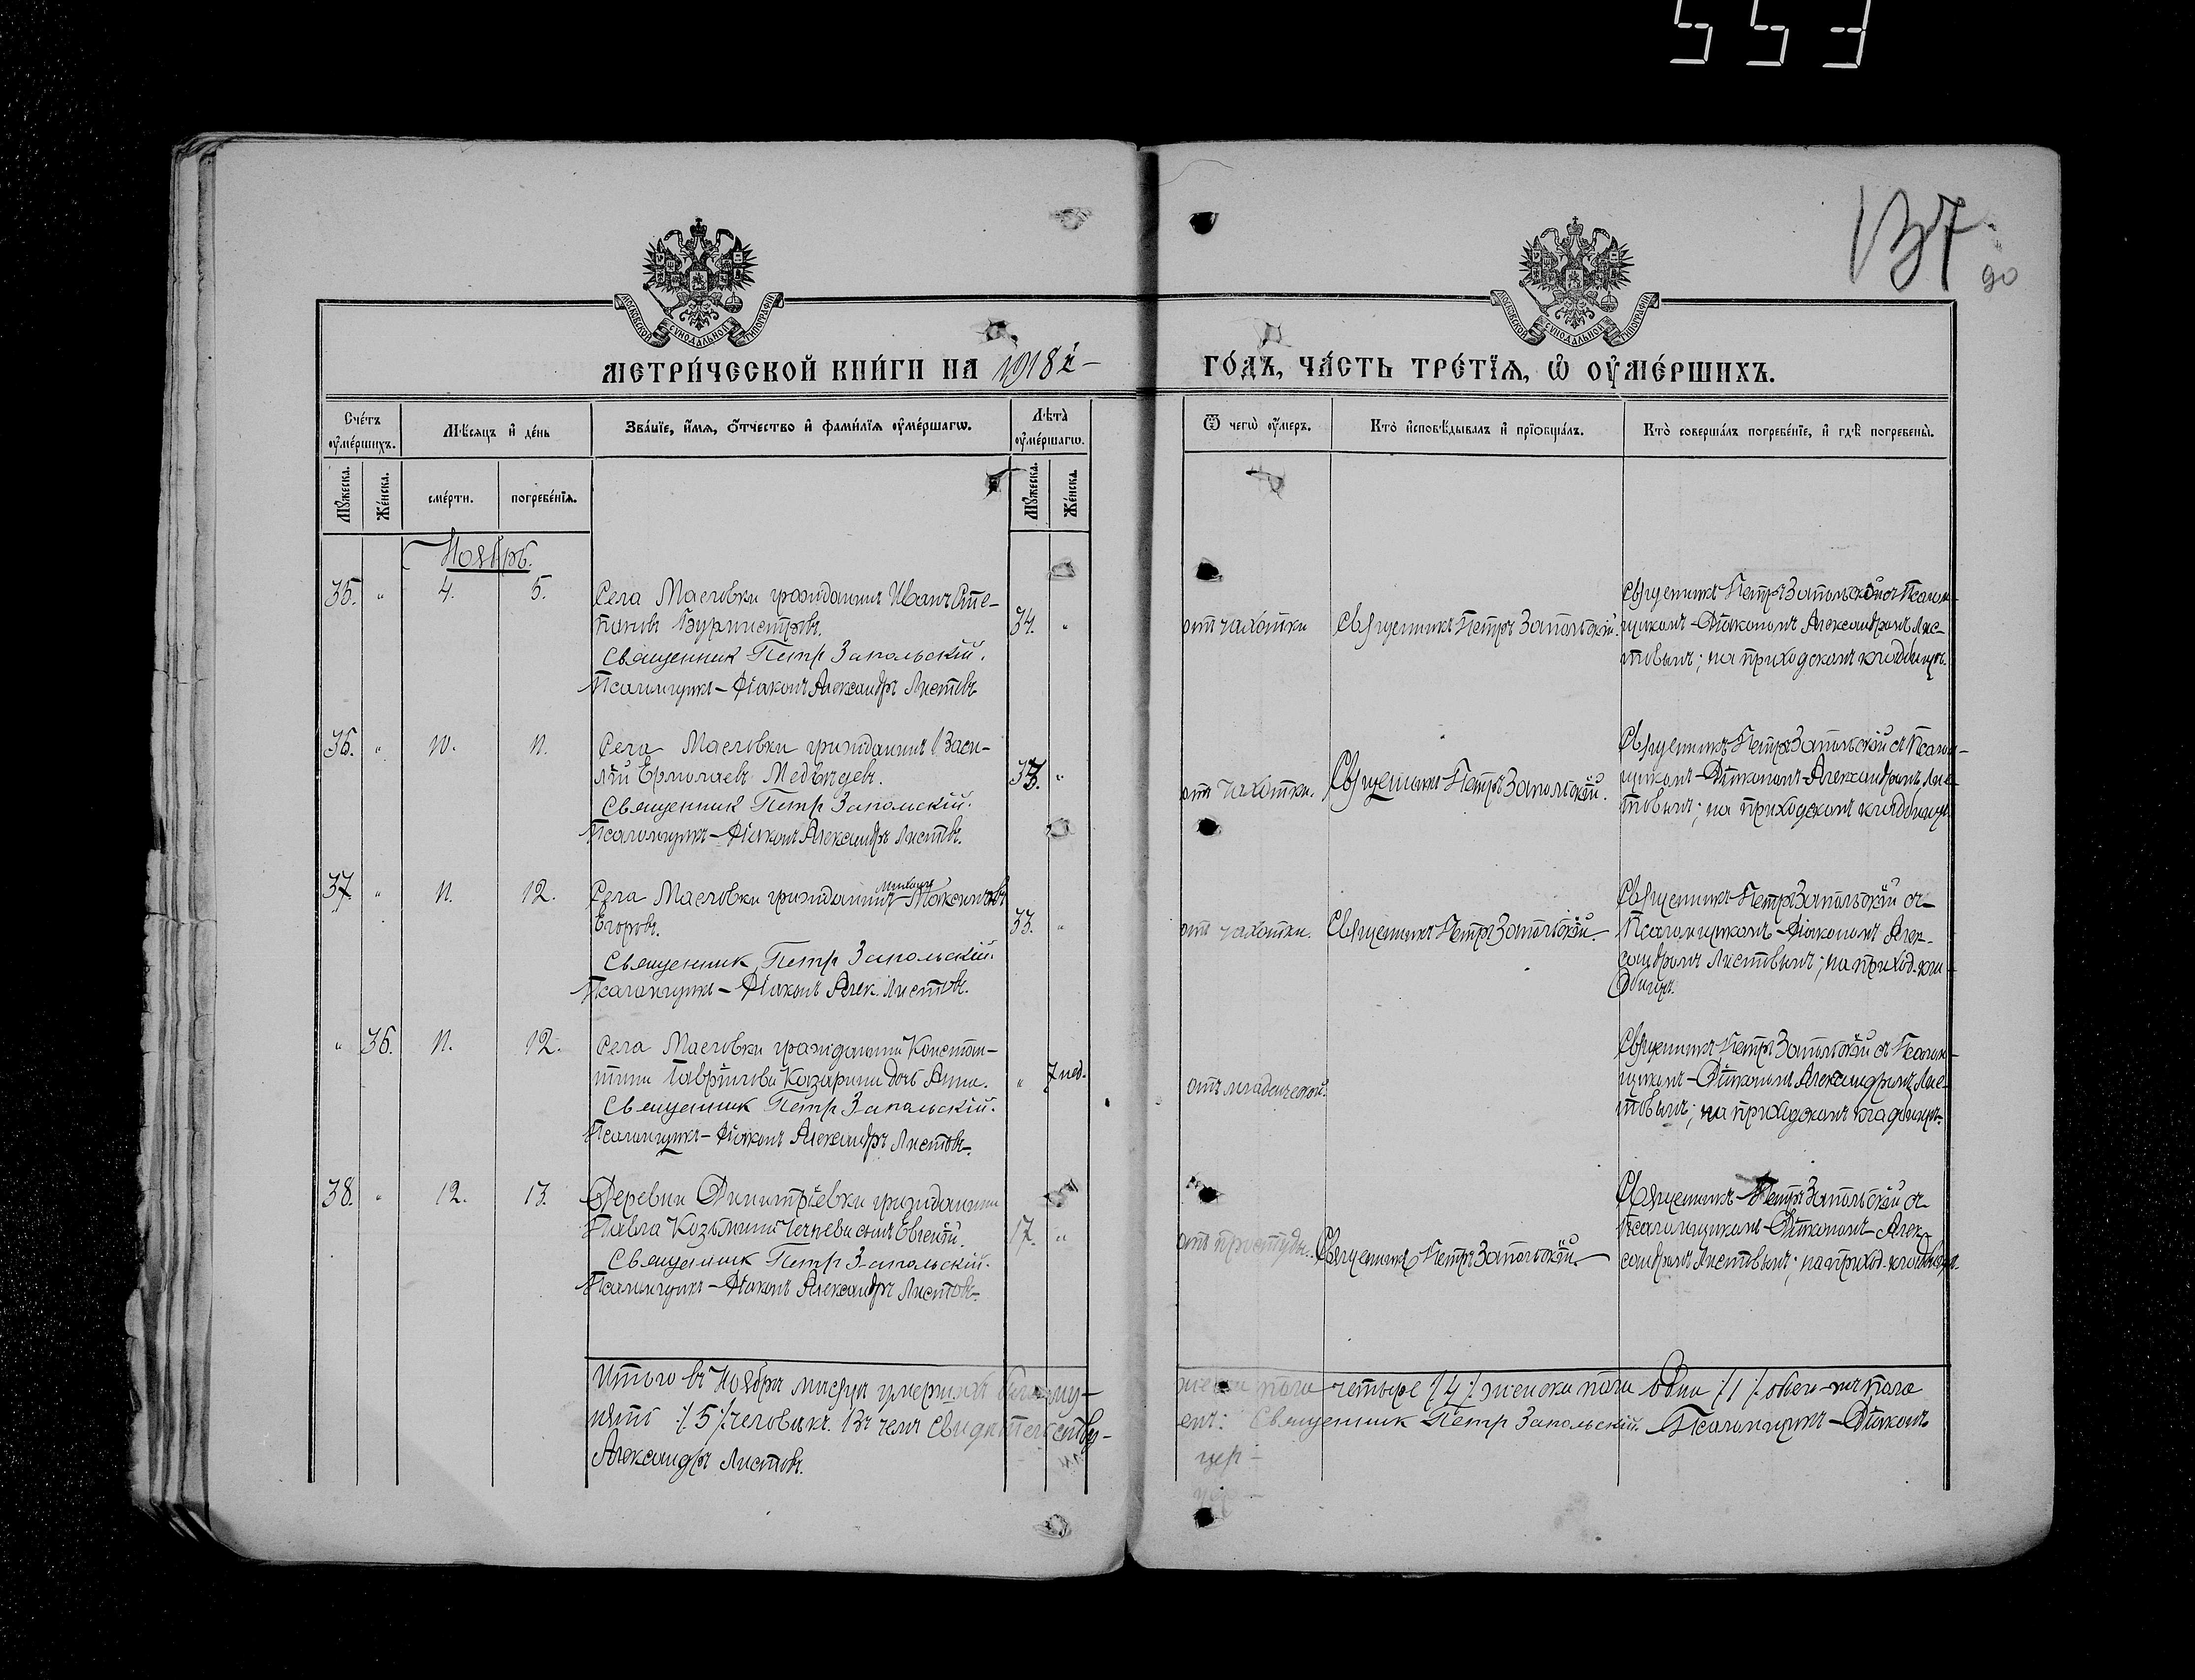 553
137
90
МОСКОВСКОЙ СѴНОДАЛЬНОЙ ТИПОГРАФІИ
МОСКОВСКОЙ СѴНОДАЛЬНОЙ ТИПОГРАФІИ
МЕТРИ́ЧЕСКОЙ КНИ́ГИ НА 1918й
ГО́ДЪ, ЧА́СТЬ ТРЕ́ТЇѦ, Ѡ҆ ОУ҆МЕ́РШИХЪ.
Сче́тъ оу҆ме́ршихъ.
Мѣ́сяцъ и҆ де́нь
Зва́нїе, и҆́мѧ, ѻ҆́тчество и҆ фами́лїѧ оу҆ме́ршагѡ.
Лѣ́та оу҆ме́ршагѡ.
Ѿ чегѡ̀ оу҆́меръ.
Кто̀ и҆сповѣ́дывалъ и҆ прїѡбща́лъ.
Кто̀ соверша́лъ погребе́нїе, и҆ гдѣ̀ погребены̀.
Мꙋ́жеска.
Же́нска.
сме́рти.
погребе́нїѧ.
Мꙋ́жеска.
Же́нска.
Ноябрь.
35. " 4. 5. Села Масловки гражданинъ Иванъ Сте-
пановъ Бурмистровъ. 34. "
Священник Петр Запольскій.
Псаломщикъ - Діаконъ Александръ Листовъ
отъ чахотки
Священникъ Петръ Запольскій.
Священникъ Петръ Запольскій съ Псалом-
щикомъ - Діакономъ Александромъ Лис-
товымъ; на приходскомъ кладбищѣ.
36. " 10. 11. Села Масловки гражданинъ Васи-
лій Ермолаевъ Медвѣдевъ. 33. "
Священник Петр Запольскій.
Псаломщикъ - Діаконъ Александръ Листовъ.
отъ чахотки.
Священникъ Петръ Запольскій.
Священникъ Петръ Запольскій съ Псалом-
щикомъ - Діакономъ Александромъ Лис-
товымъ; на приходскомъ кладбищѣ
37. " 11. 12. Села Масловки гражданинъ Михаилъ Максимовъ
Егоровъ. 33. "
Священник Петр Запольскій.
Псаломщикъ - Діаконъ Алек. Листовъ.
отъ чахотки.
Священникъ Петръ Запольскій.
Священникъ Петръ Запольскій съ
Псаломщикомъ - Діакономъ Алек-
сандромъ Листовымъ; на приход. кла-
дбищѣ.
" 36. 11. 12. Села Масловки гражданина Констан-
тина Гаврілова Казарина дочь Анна. " 7 нед.
Священник Петр Запольскій.
Псаломщикъ - Діаконъ Александръ Листовъ.
отъ младенческой.
Священникъ Петръ Запольскій съ Псалом-
щикомъ - Діакономъ Александромъ Лис-
товымъ; на приходскомъ кладбищѣ.
38. " 12. 13. Деревни Димитріевки гражданина
Павла Козьмина Чернева сынъ Евгеній. 17. "
Священник Петр Запольскій.
Псаломщикъ - Діаконъ Александръ Листовъ.
отъ простуды.
Священникъ Петръ Запольскій.
Священникъ Петръ Запольскій съ
Псаломщикомъ - Діакономъ Алек-
сандромъ Листовымъ; на приход. кладбищѣ.
Итого въ Ноябрѣ мѣсяцѣ умершихъ было му-
жеска пола четыре /4/ женска пола одна /1/ обоего пола
пять /5/ человѣкъ. Въ чемъ свидѣтельству-
емъ: Священник Петр Запольскій. Псаломщикъ - Діаконъ
Александръ Листовъ.